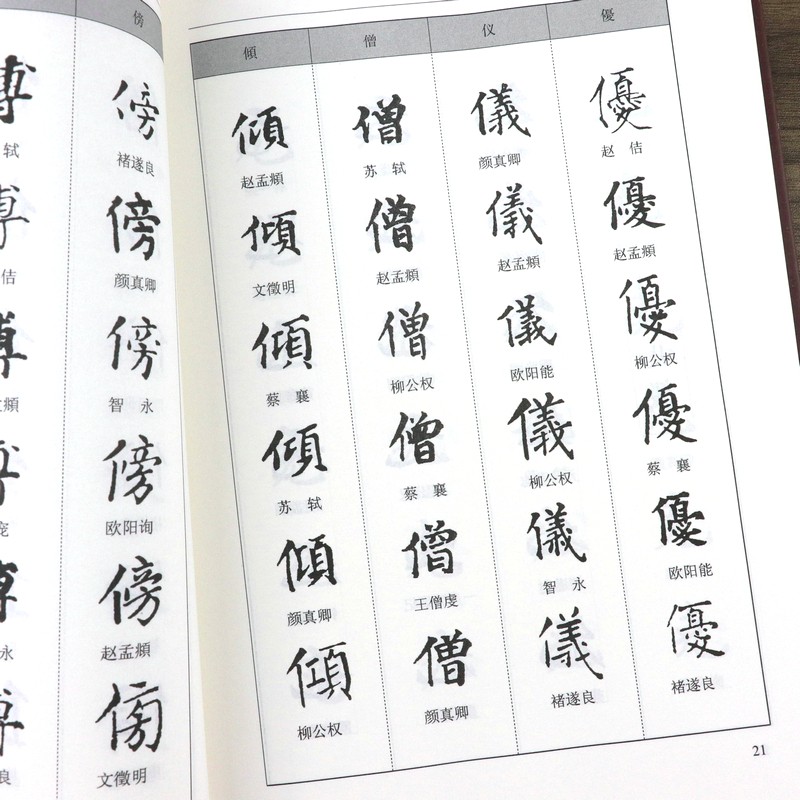 傍
傍
褚遂良
傍
颜真卿
傍
智 永
傍
欧阳询
傍
赵孟頫
傍
文徵明
傾 僧 仪 優
傾 僧 儀 優
赵孟頫 苏 轼 颜真卿 赵 佶
傾 僧 儀 優
文徵明 赵孟頫 赵孟頫 赵孟頫
傾 僧 儀 優
蔡 襄 柳公权 欧阳能 柳公权
傾 僧 儀 優
苏 轼 蔡 襄 柳公权 蔡 襄
傾 僧 儀 優
颜真卿 王僧虔 智 永 欧阳能
傾 僧 儀 優
柳公权 颜真卿 褚遂良 褚遂良
21